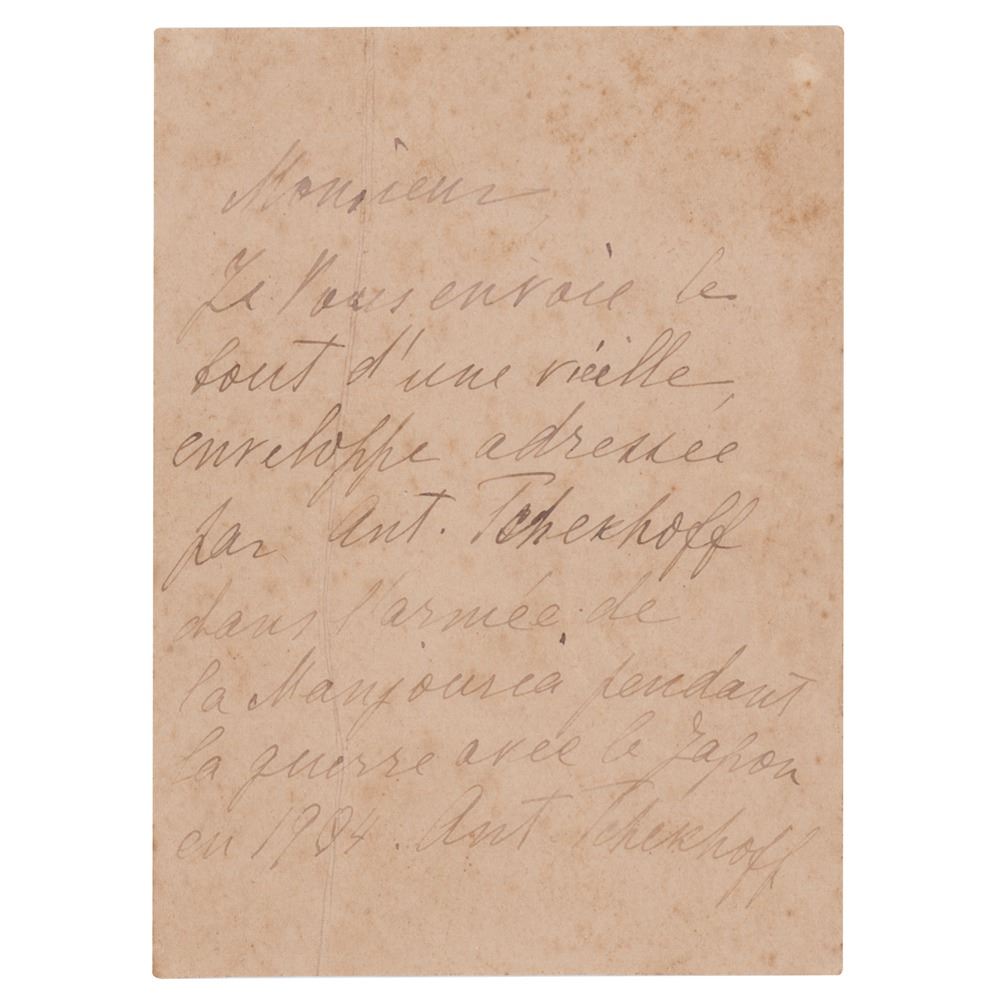 Monsieur,
Je Vous envoie le
bout d'une vieille
enveloppe adressée
par Ant. Tchekhoff
dans l'armée de
la Manjouria pendant
la guerre avec le Japon
en 1904. Ant Tchekhoff